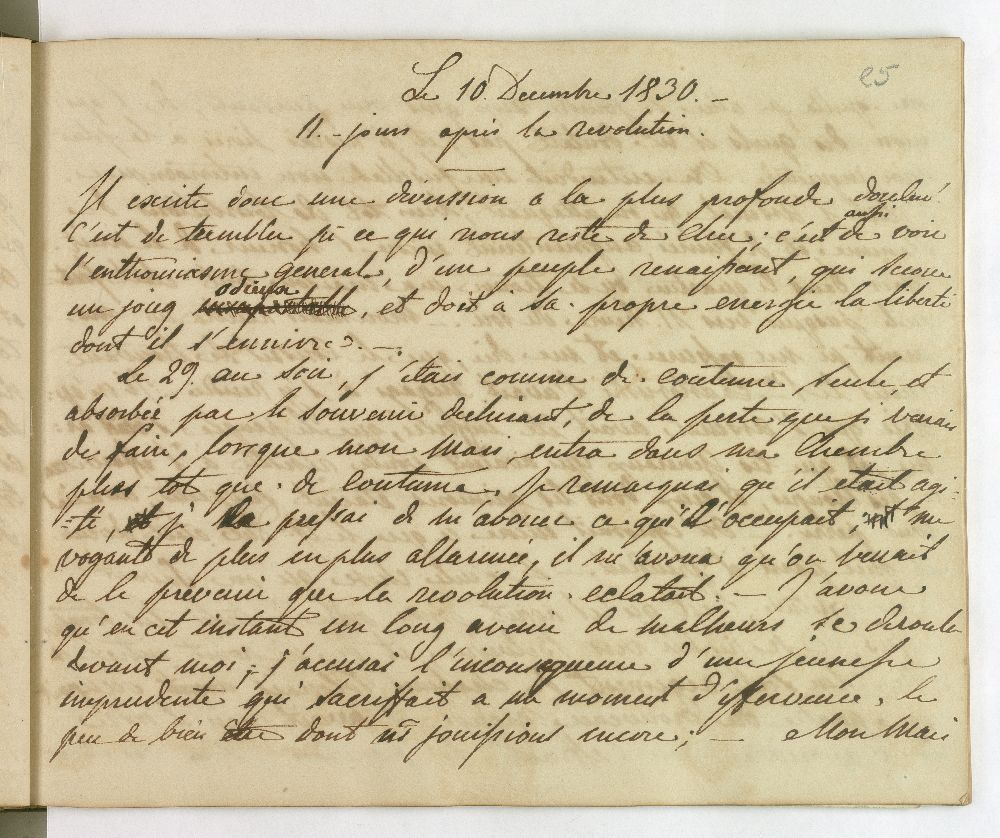 25
Le 10. Decembre 1830. –
11. – jours après la revolution.
Il existe donc une diverssion a la plus profonde douleur
C'est de trembler pr ce qui nous reste de cher; c'est aussi de voir
l'enthousiasme general, d'un peuple renaissant, qui secoue
un joug odieux, et doit à sa propre energie la liberté
dont il s'ennivre. –
Le 29. au soir, j'étais comme de coutume seule, et
absorbée par le souvenir dechirant, de la perte que je venais
de faire, lorsque mon Mari, entra dans ma Chambre
plus tot que de coutume. Je remarquai qu'il etait agi-
-té, je le pressai de m'avouer ce qui l'occupait, me
voyant de plus en plus allarmée, il m'avoua qu'on venait
de le prevenir que la revolution eclatait. – J'avoue
qu'en cet instant un long avenir de malheurs se deroula
devant moi; j'accusai l'inconsequence d'une jeunesse
imprudente qui sacriffiait a un moment d'effervence, le
peu de bien être dont ns jouissions encore; – Mon Mari